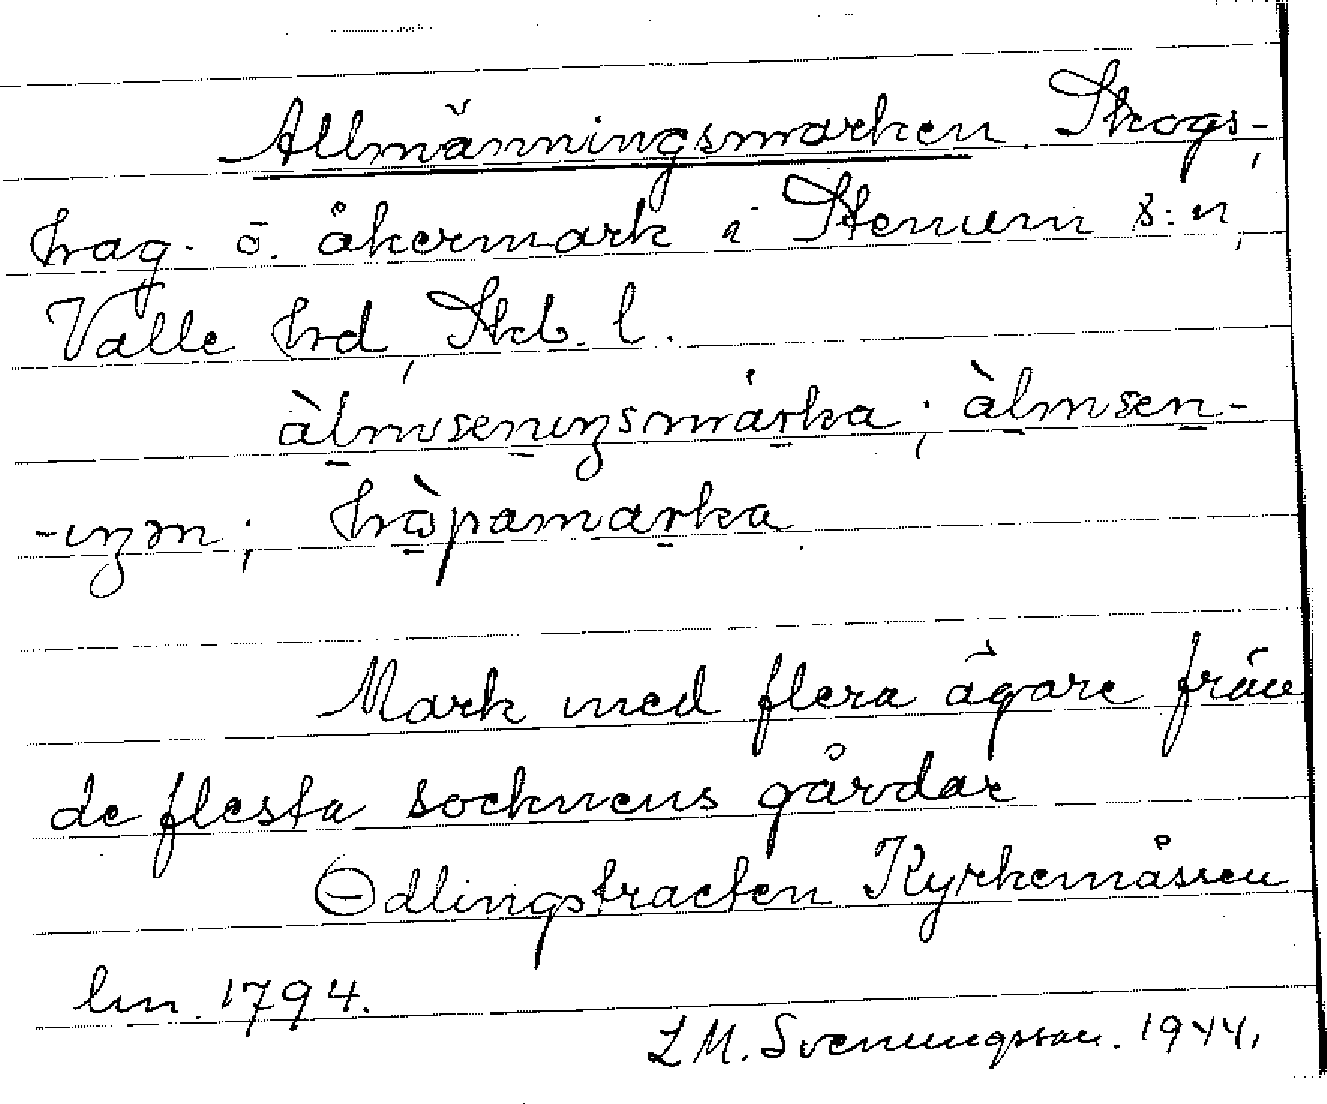 Allmänningsmarken. Skogs-,
hag- o. åkermark i Stenum s:n,
Valle hrd, Skb. l.
àlmseniŋsmárka; àlmsen-
-iŋən; hòpamarka.
Mark med flera ägare från
de flesta socknens gårdar
Odlingstracten Kyrkemåsen
lm. 1794.
L M. Svenungsson. 1944.